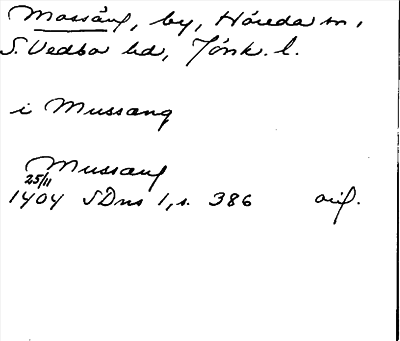 Mossäng, by, Höreda sn,
S. Vedbo hd, Jönk. l.
i Mussang
Mussang
25/11
1404 SDns 1, s. 386 orig.